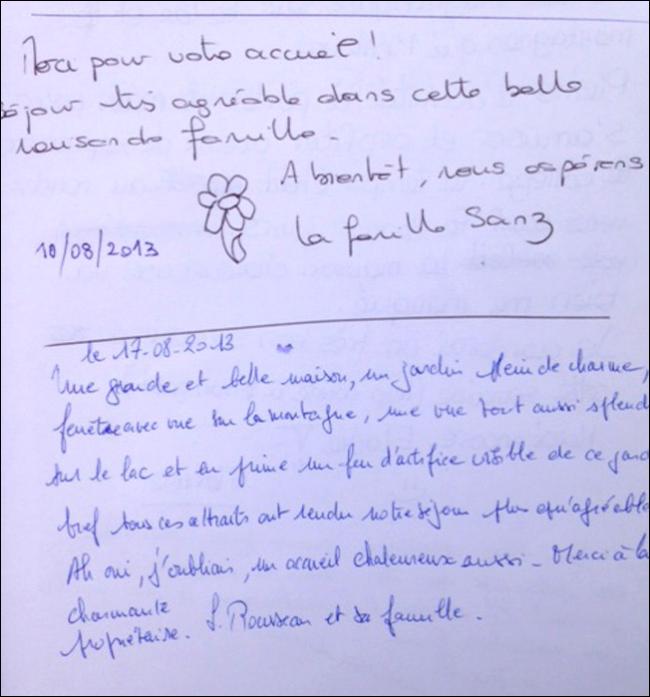 Merci pour votre accueil!
séjour très agréable dans cette belle
maison de famille
A bientôt, nous espérons
la famille Sanz
10/08/2013
le 17-08-2013
Une grande et belle maison, un jardin plein de charme,
fenêtre avec vue sur la montagne, une vue tout aussi splend
sur le lac et en prime un feu d'artifice visible de ce jard
bref tous ces attraits ont rendu notre séjour plus qu'agréable
Ah oui, j'oubliais, un accueil chaleureux aussi - Merci à la
charmante
propriétaire. S. Rousseau et sa famille.